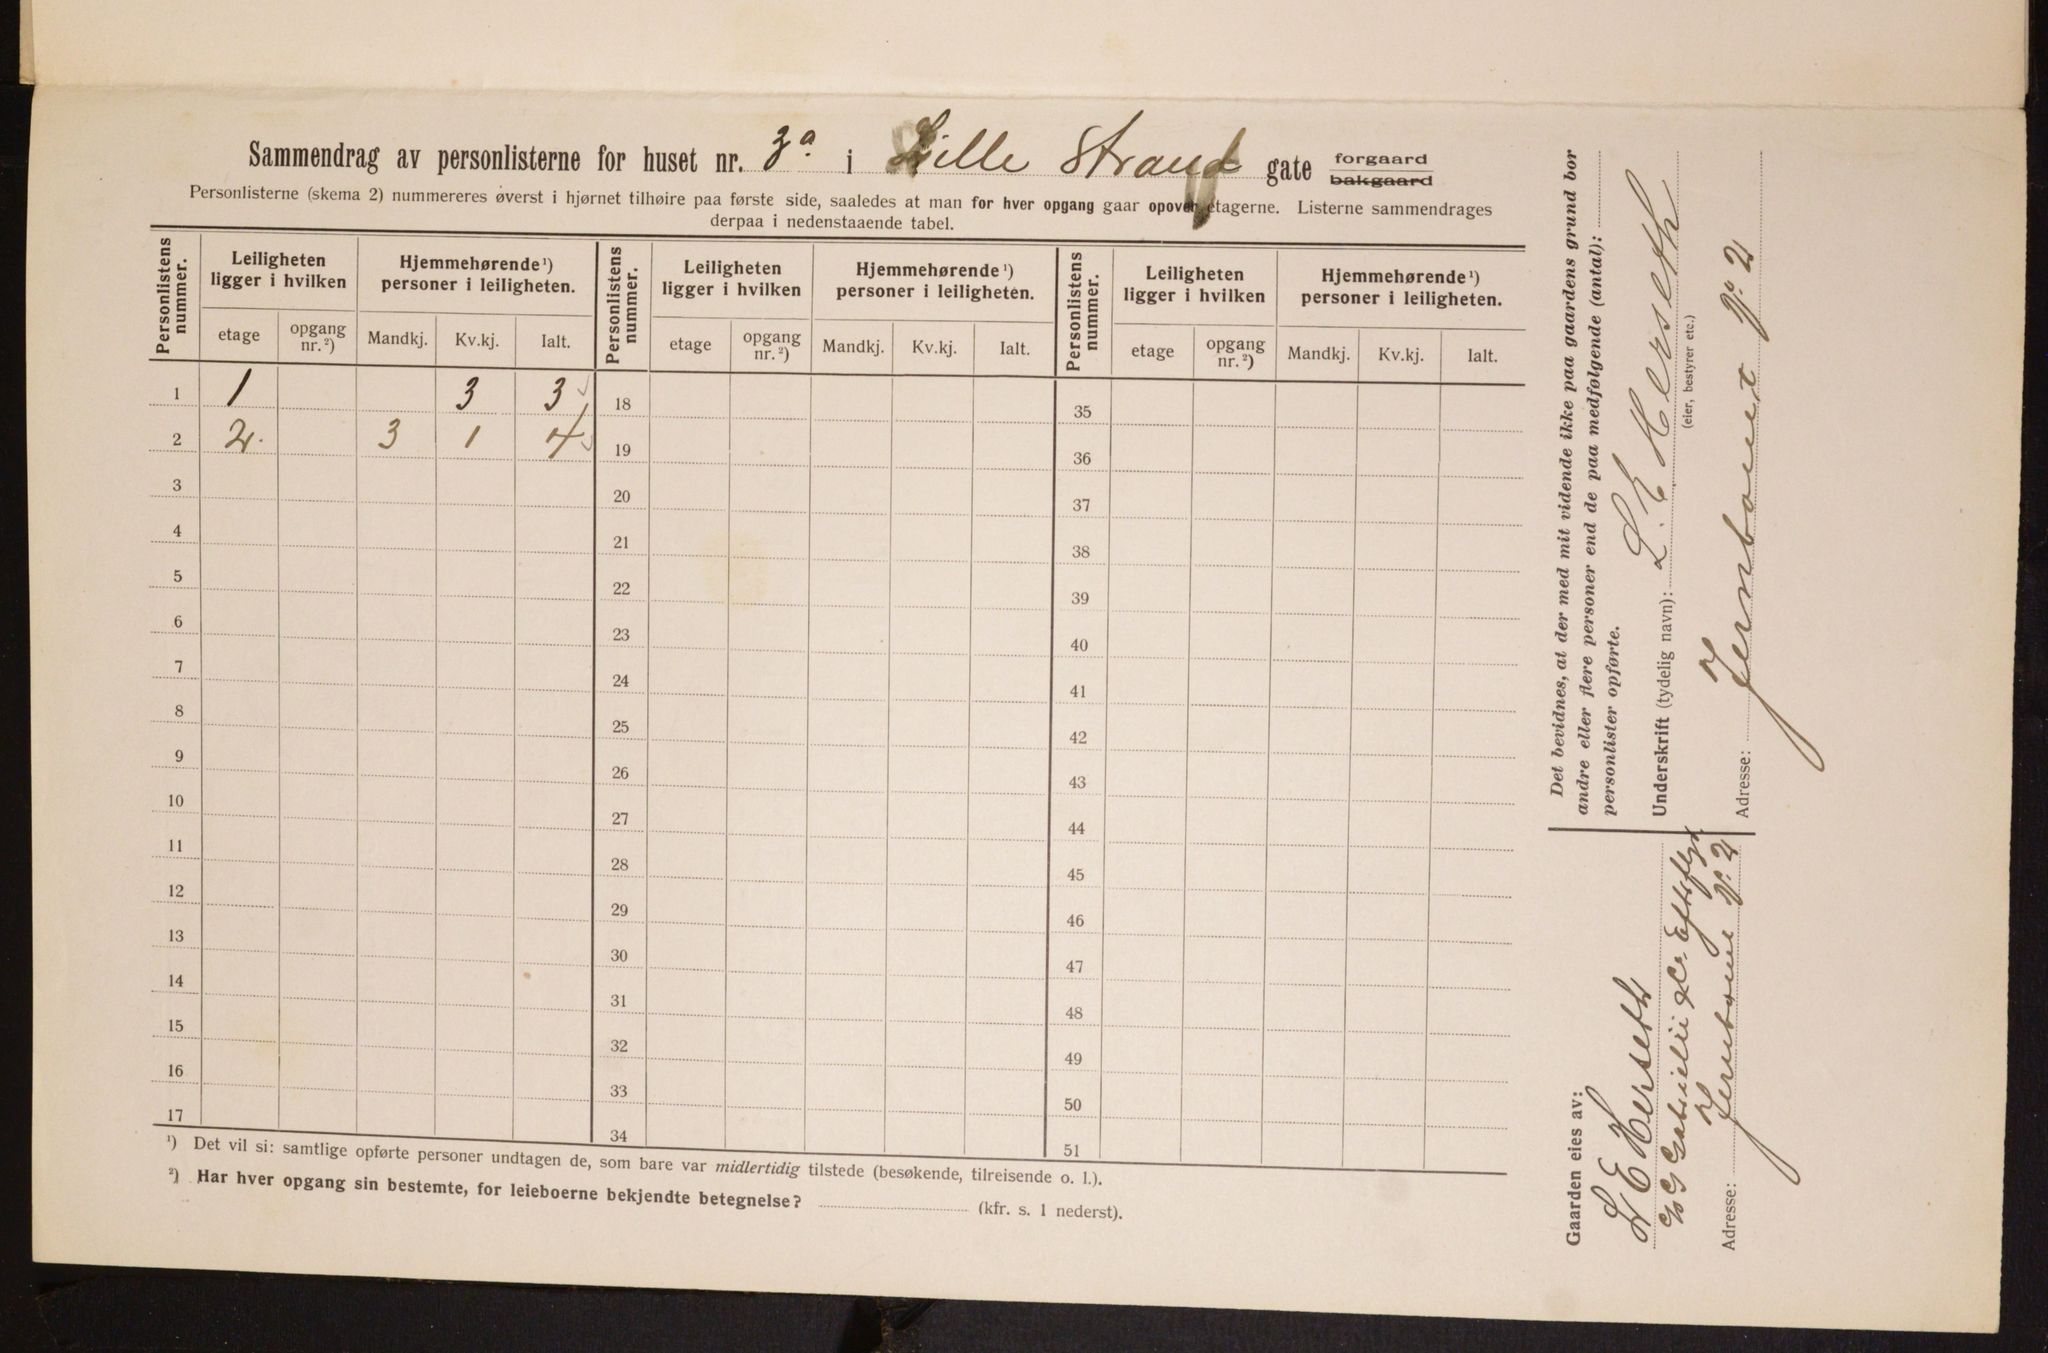 Sammendrag av personlisterne for huset nr. 3a. i Lille Strand gate forgaard bakgaard
Personlisterne (skema 2) nummereres øverst i hjørnet tilhøire paa første side, saaledes at man for hver opgang gaar opover etagerne. Listerne sammendrages
derpaa i nedenstaaende tabel.
Personlistens nummer. Leiligheten ligger i hvilken Hjemmehørende¹) personer i leiligheten. Personlistens nummer. Leiligheten ligger i hvilken Hjemmehørende¹) personer i leiligheten. Personlistens nummer. Leiligheten ligger i hvilken Hjemmehørende¹) personer i leiligheten.
etage opgang nr.²) Mandkj. Kv.kj. Ialt. etage opgang nr.²) Mandkj. Kv.kj. Ialt. etage opgang nr.²) Mandkj. Kv.kj. Ialt.
1 1 3 3 18 35
2 2. 3 1 4 19 36
3 20 37
4 21 38
5 22 39
6 23 40
7 24 41
8 25 42
9 26 43
10 27 44
11 28 45
12 29 46
13 30 47
14 31 48
15 32 49
16 33 50
17 34 51
¹) Det vil si: samtlige opførte personer undtagen de, som bare var midlertidig tilstede (besøkende, tilreisende o. l.).
²) Har hver opgang sin bestemte, for leieboerne bekjendte betegnelse? (kfr. s. 1 nederst).
Det bevidnes, at der med mit vidende ikke paa gaardens grund bor
andre eller flere personer end de paa medfølgende (antal):
personlister opførte.
Underskrift (tydelig navn): L. E Herseth
(eier, bestyrer etc.)
Adresse: Jernbanet No. 2
Gaarden eies av:
L E Herseth
c/o G Gabrielli & Co Efterflgr
Adresse: Jernbane No. 2